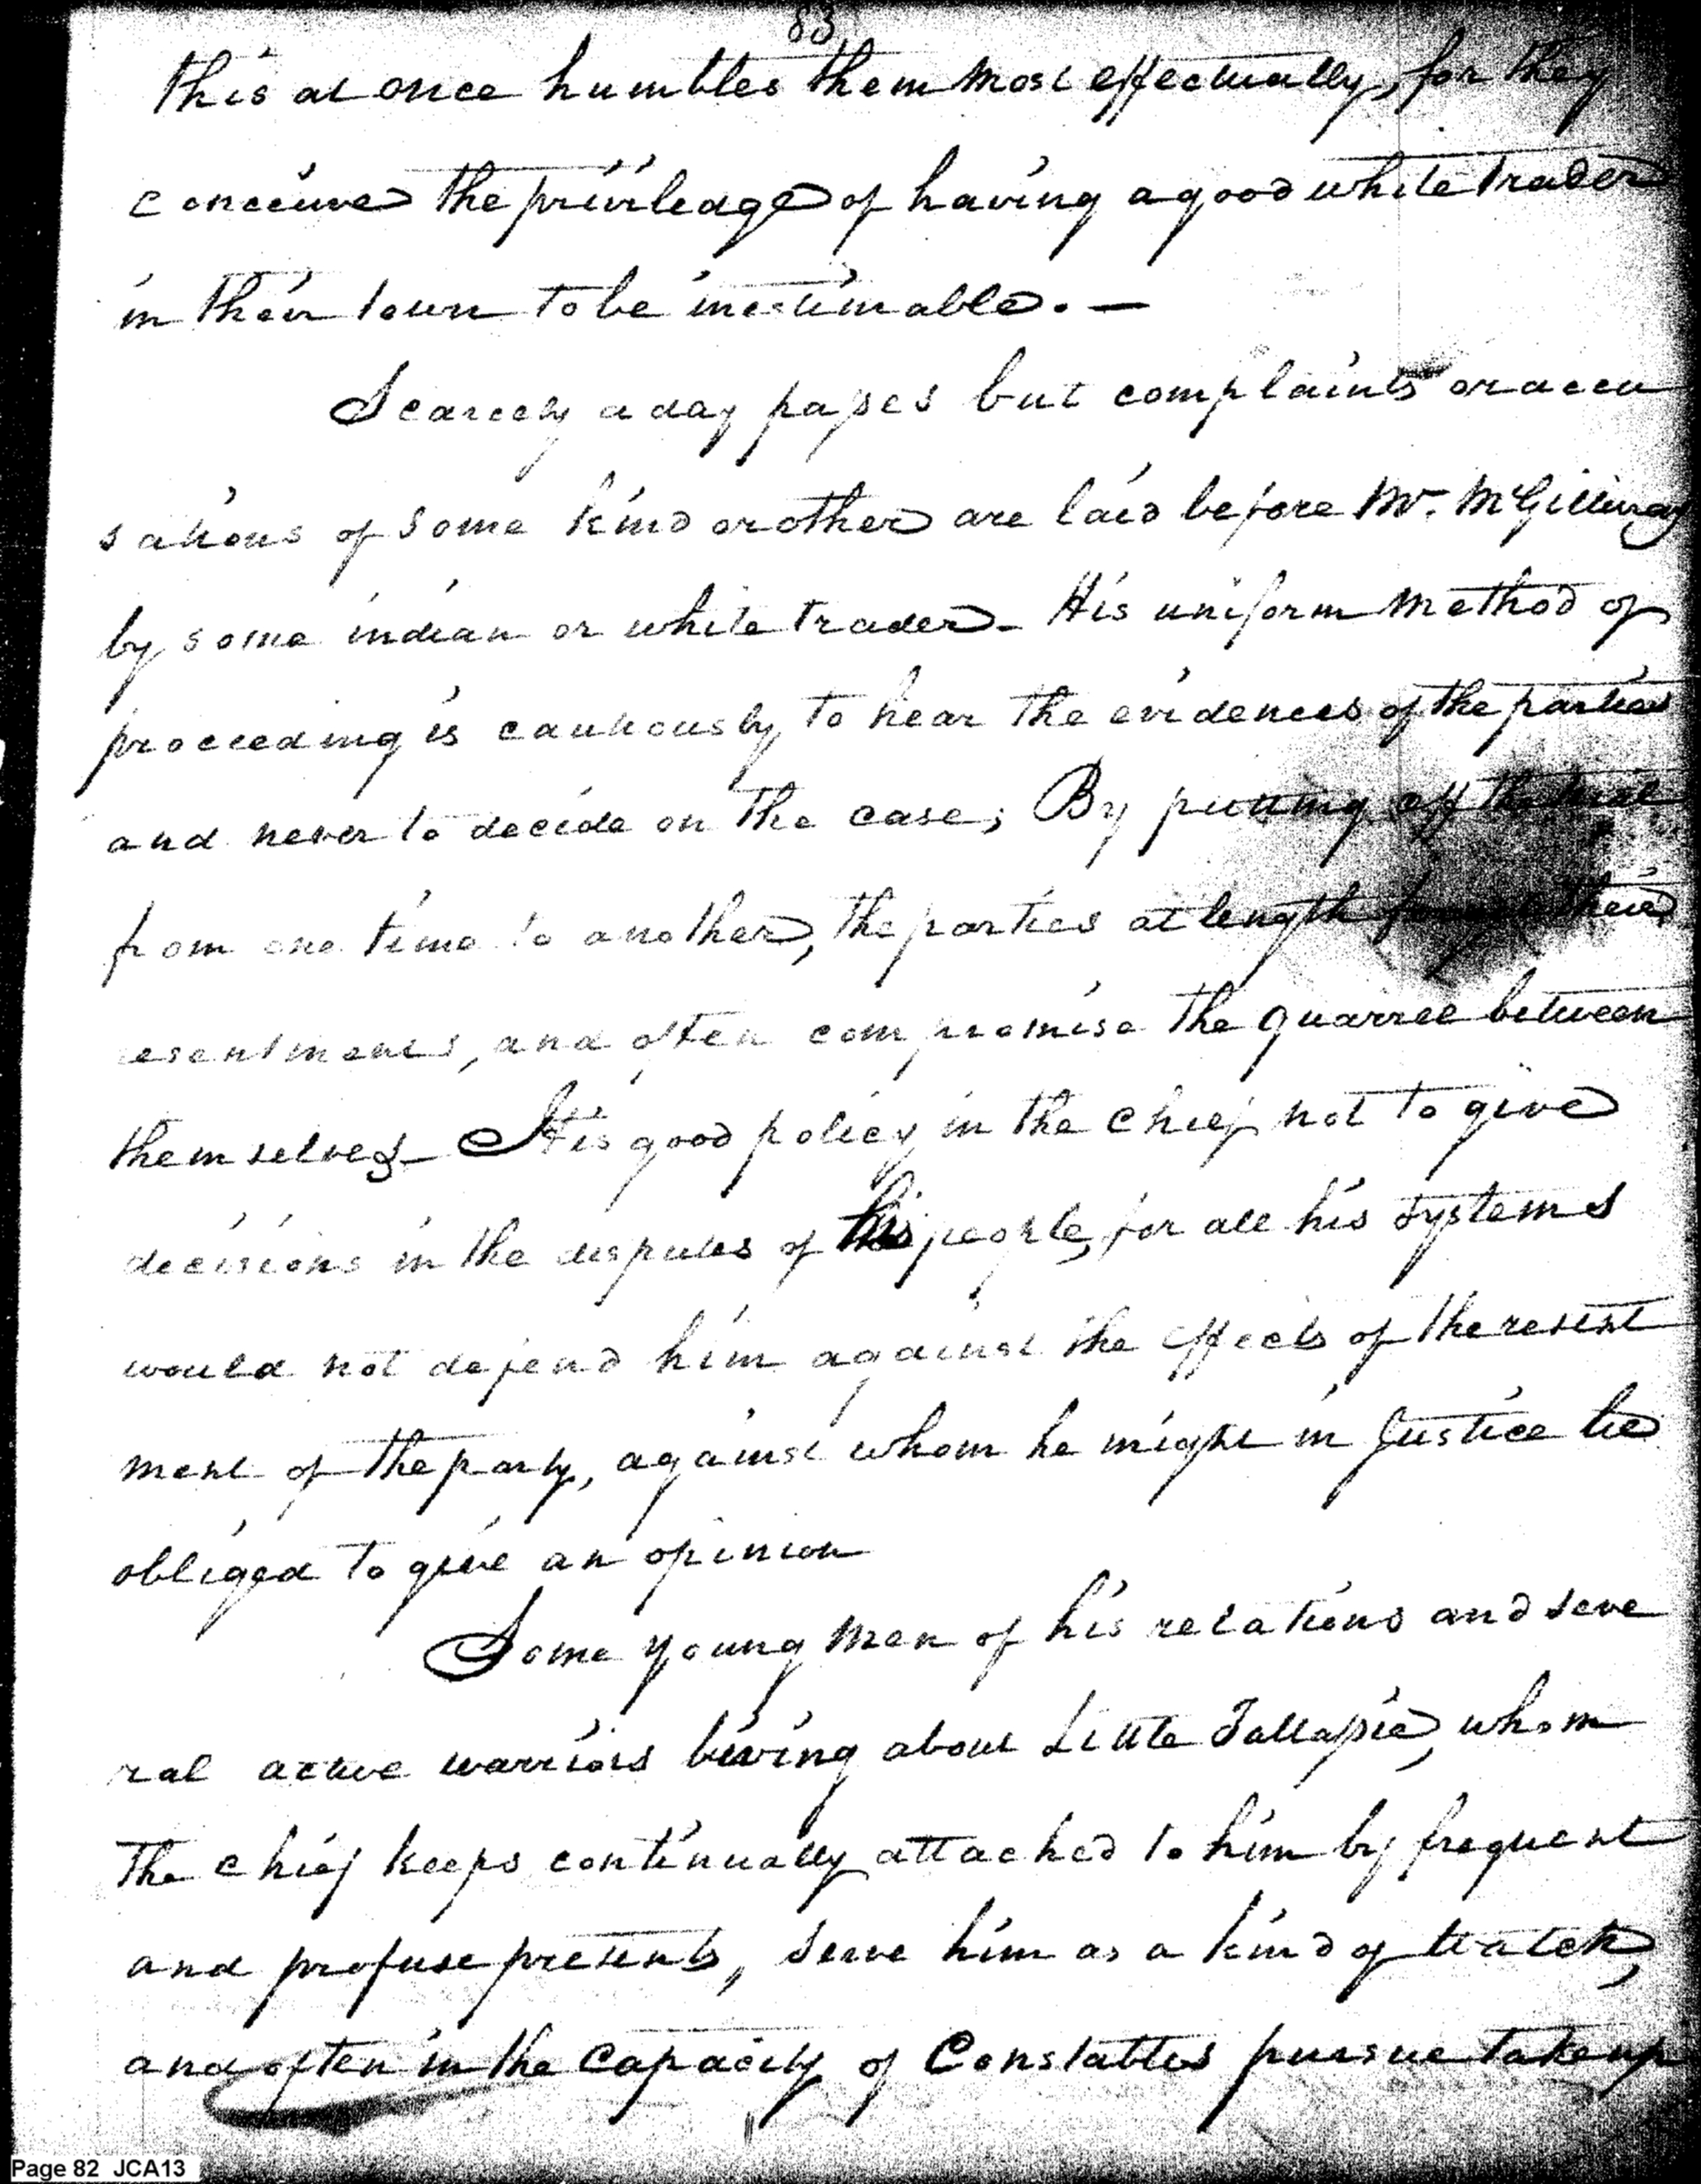 83
this at once humbles them most effectually, for they
conceive the priviledge of having a good white trader
in their town to be inestimable. —
Scarcely a day passes but complaints or accu
sations of some kind or other are laid before Mr. McGillivray
by some indian or white trader - His uniform method of
proceeding is cautiously to hear the evidences of the parties
and never to decide on the case; By putting off the trial
from one time to another, the parties at length their
resentments, and often compromise the quarrel between
themselves - It is good policy in the chief not to give
decisions in the disputes of his people, for all his systems
would not defend him against the effects of the resent
ment of the party, against whom he might in Justice be
obliged to give an opinion
Some young men of his relations and seve
ral active warriors living about Little Tallassie, whom
the chief keeps continually attached to him by frequent
and profuse presents, serve him as a kind of watch,
and often in the Capacity of Constables pursue take up
Page 82 JCA13